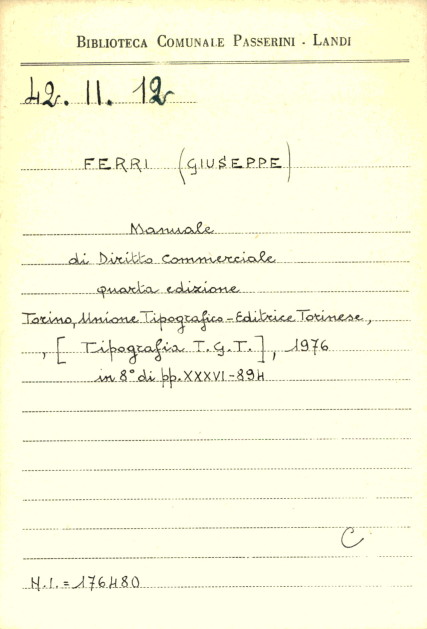 BIBLIOTECA COMUNALE PASSERINI - LANDI
42. II. 12
FERRI (GIUSEPPE)
Manuale
di Diritto Commerciale
quarta edizione
Torino, Unione Tipografico-Editrice Torinese,
, [Tipografia T.G.T.], 1976
in 8° di pp. XXXVI-894
C
N.I.= 176480